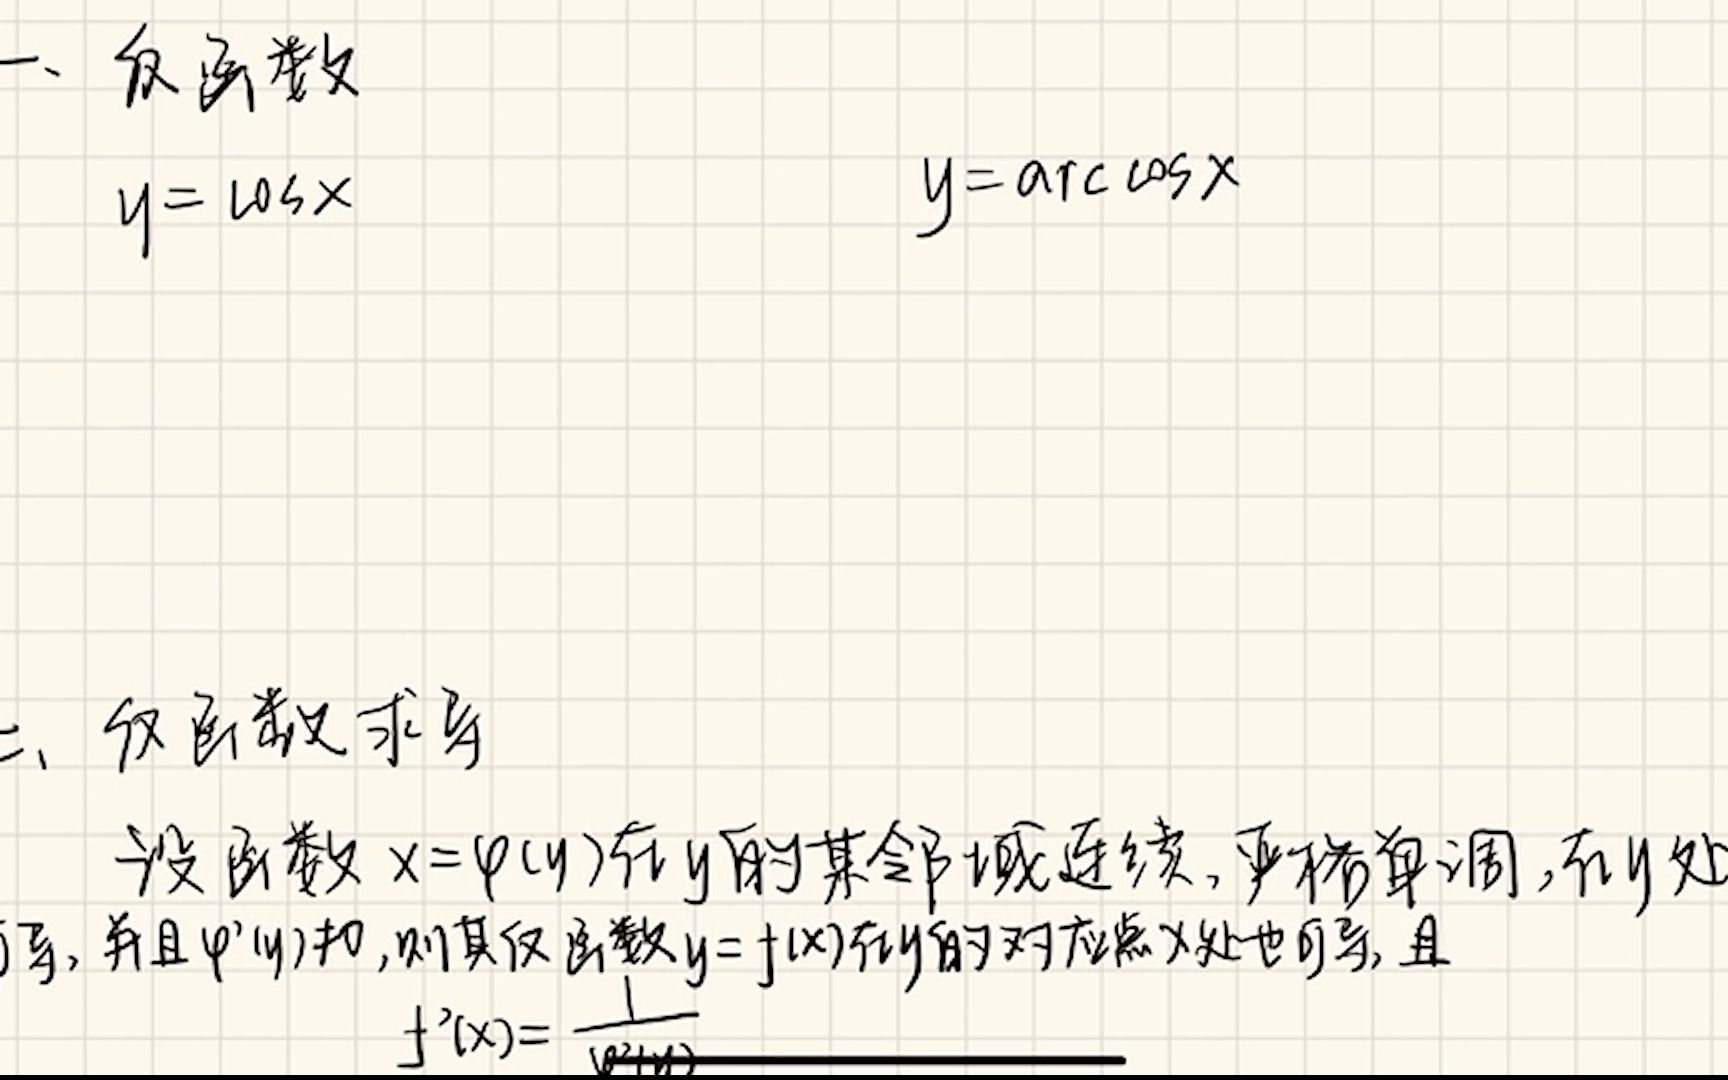 一、反函数
y=cosx
y=arccosx
二、反函数求导
设函数 x=φ(y)在y的某邻域连续,严格单调,在y处
可导,并且φ'(y)≠0,则其反函数y=f(x)在y的对应点x处也可导,且
f'(x)=1/φ'(y)